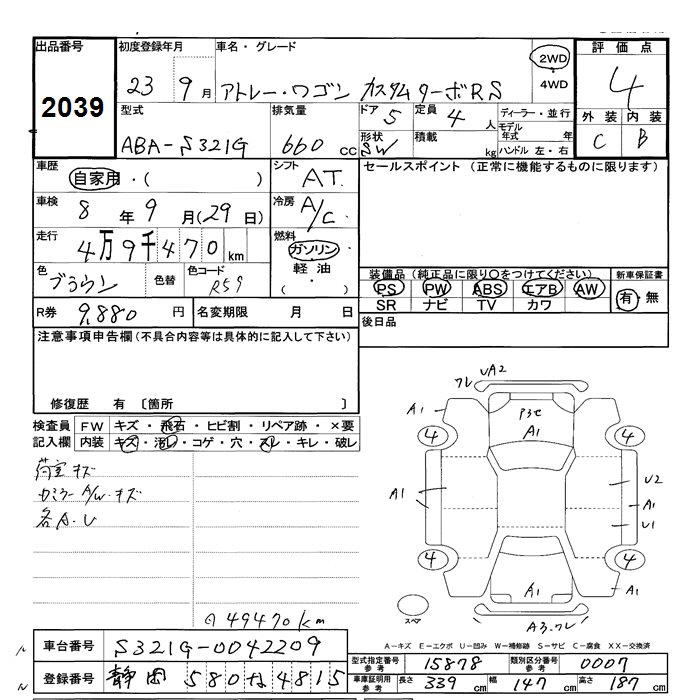 出品番号 初度登録年月 車名・グレード 評価点
2039 23 9月 アトレー・ワゴン カスタムターボRS 2WD 4WD 4
型式 排気量 ドア 5 定員 4人 ディーラー・並行 外装 内装
ABA-S321G 660cc 形状 SW 積載 kg モデル年式 年 C B
ハンドル 左・右
車歴 自家用・( ) シフト AT セールスポイント (正常に機能するものに限ります)
車検 8年 9月(29日) 冷房 A/C
走行 4万9千470km 燃料 ガソリン 軽油 ( ・ )
色 ブラウン 色替 色コード R59 装備品(純正品に限り○をつけてください) 新車保証書
PS PW ABS エアB AW 有・無
SR ナビ TV カワ
R券 9,880円 名変期限 月 日 後日品
注意事項申告欄(不具合内容等は具体的に記入して下さい)
修復歴 有 〔箇所 〕
検査員記入欄 FW キズ・飛石・ヒビ割・リペア跡・×要
内装 キズ・汚レ・コゲ・穴・スレ・キレ・破レ
荷室キズ
カミラー A/W・キズ
各A.U
49470km
フレ UA2
A1 P3セ
4 A1 4
A1 U2
A1
U1
4 4
A1 A1
スペア A3.フレ
A-キズ E-エクボ U-凹み W-補修跡 S-サビ C-腐食 XX-交換済
車台番号 S321G-0042209
型式指定番号 参考 15878 類別区分番号 参考 0007
登録番号 静岡 580 な 4815
車庫証明用 参考 長さ 339cm 幅 147cm 高さ 187cm